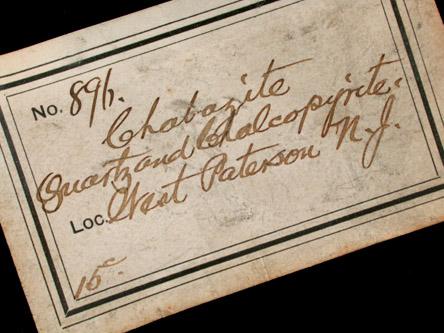 No. 896.
Chabazite
Quartz and Chalcopyrite.
Loc. West Paterson N.J.
15c